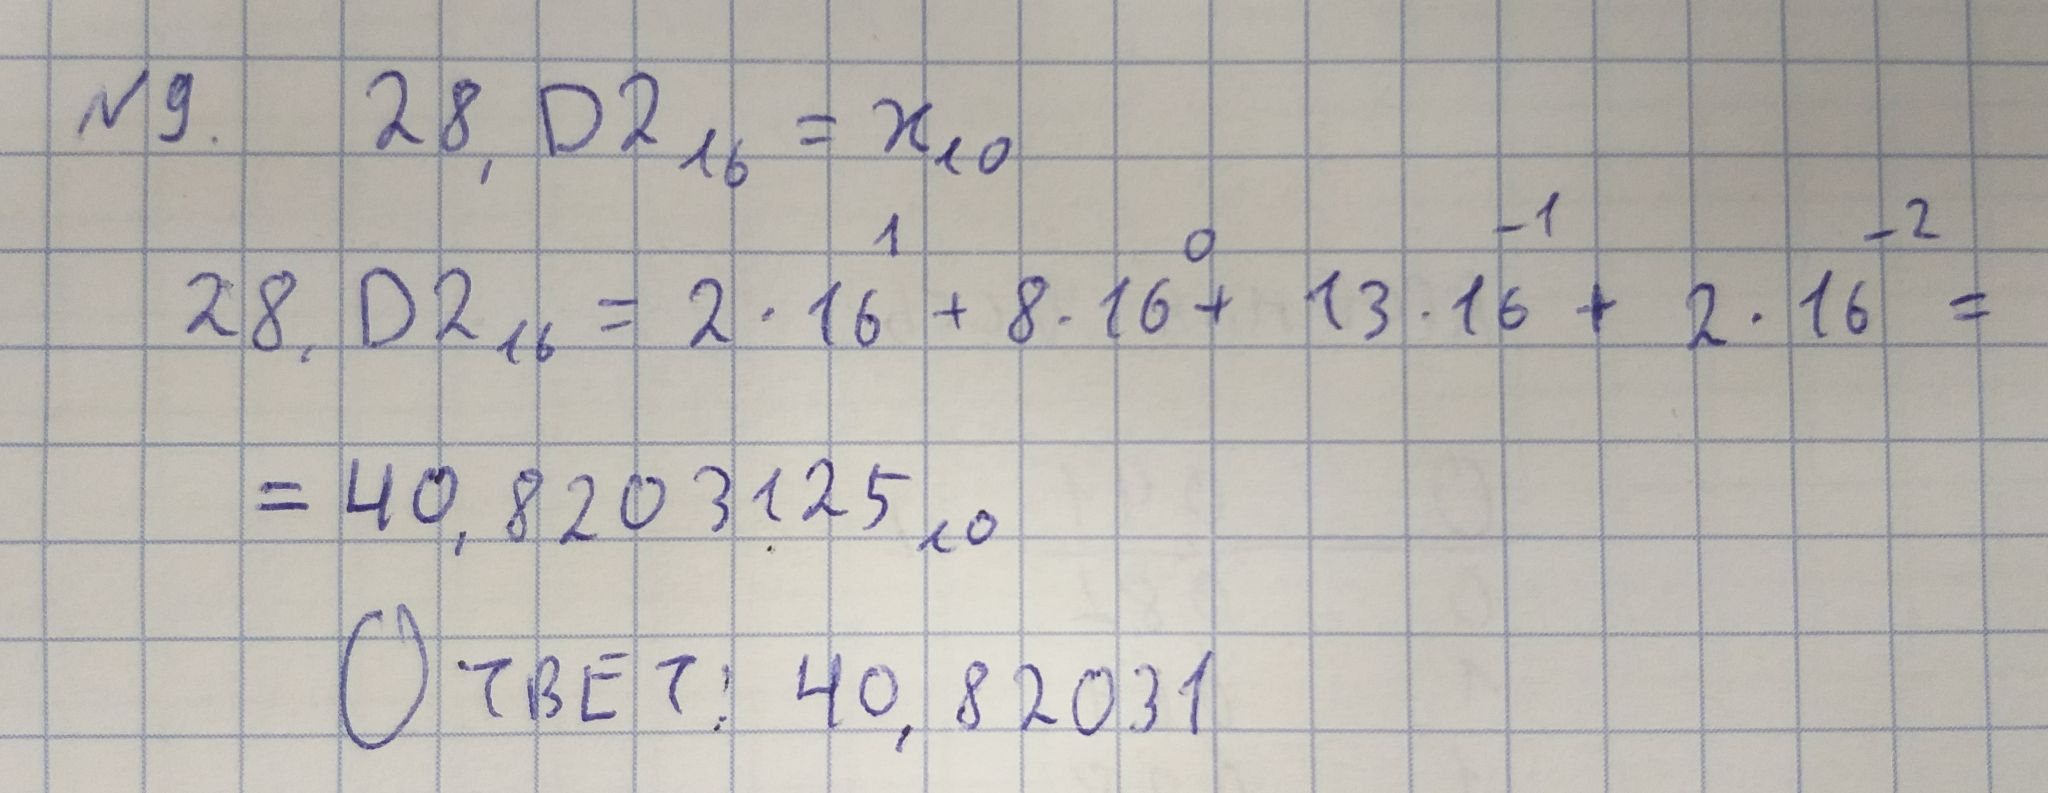 №9. 28,D2₁₆ = x₁₀
28,D2₁₆ = 2·16¹ + 8·16⁰ + 13·16⁻¹ + 2·16⁻² =
= 40,8203125₁₀
Ответ: 40,82031